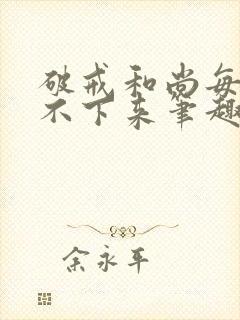 破戒和尚每
不下来筆趣
余永平